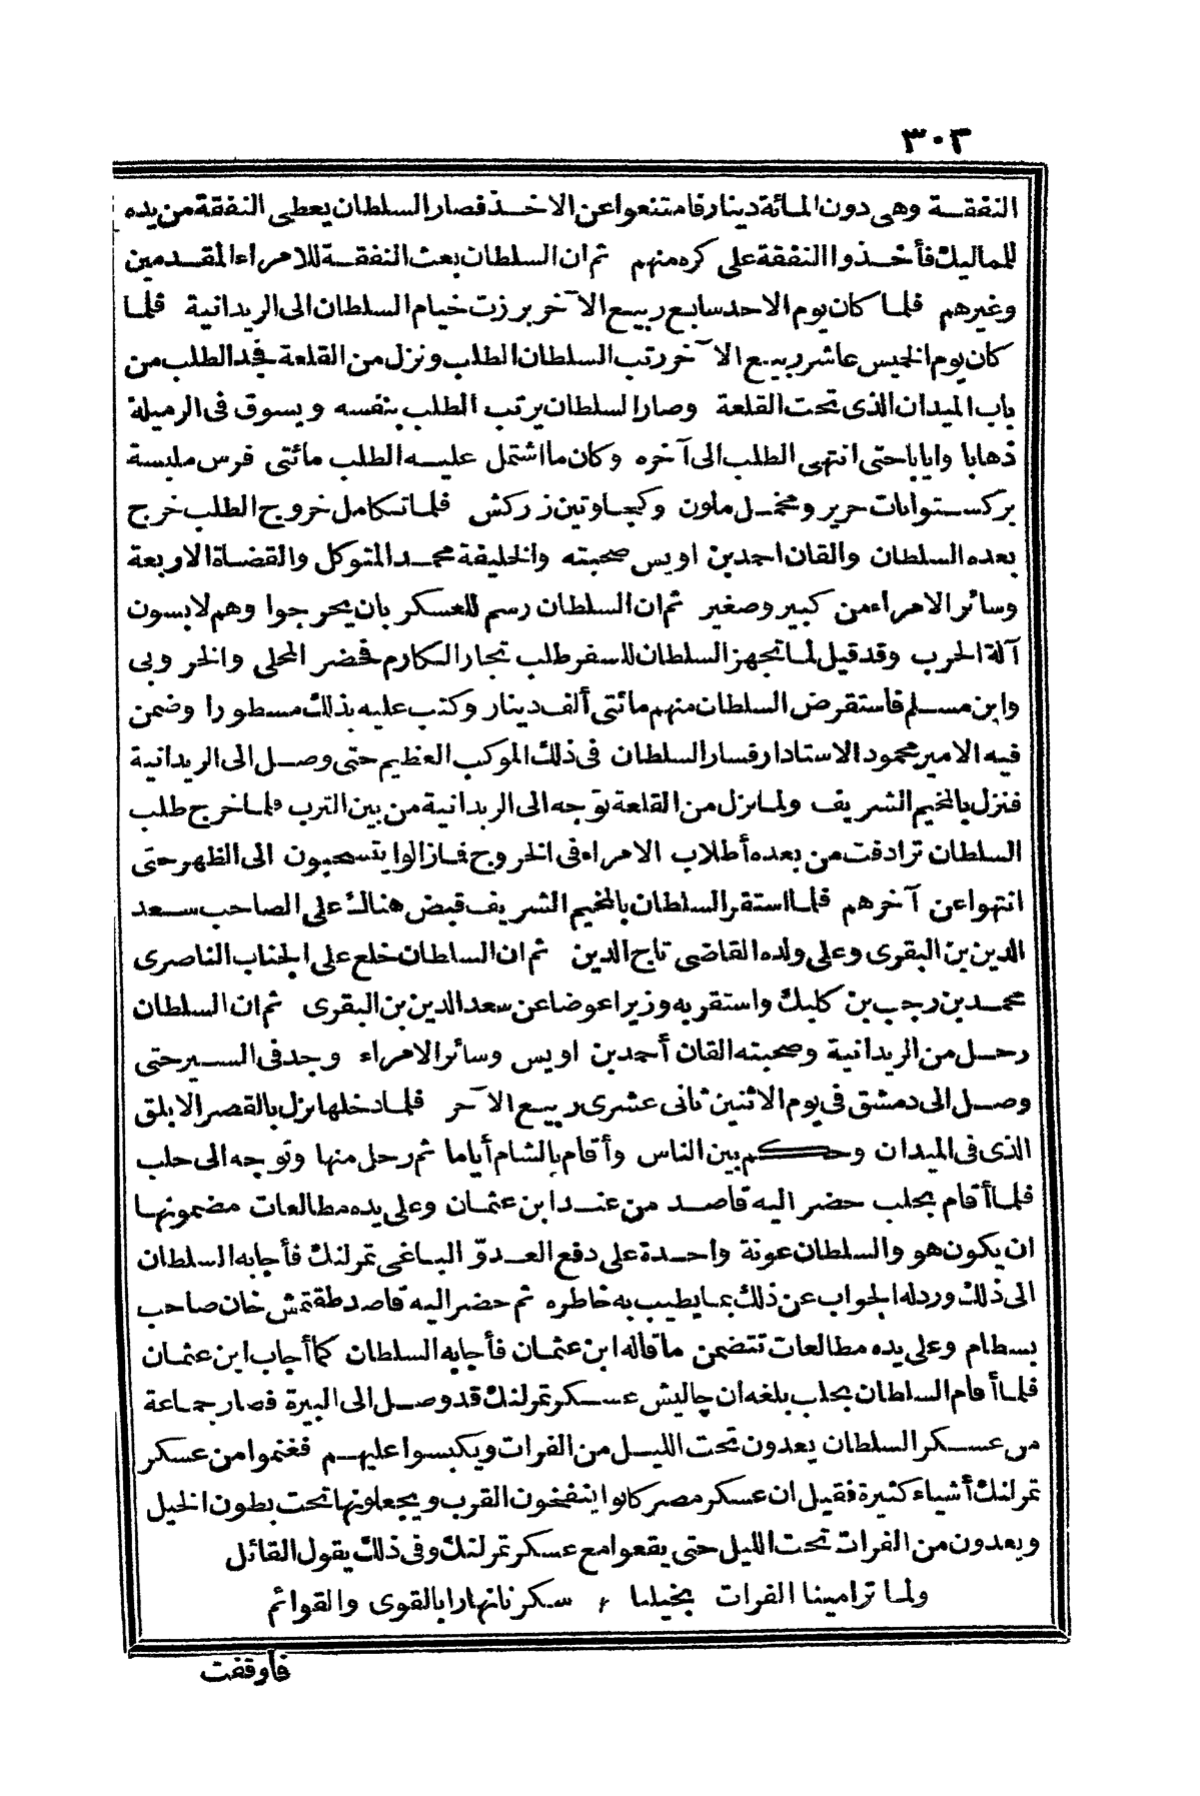 ٣٠٣
النفقة وهى دون المائة دينار فامتنعوا عن الاخذ فصار السلطان يعطى النفقة من يده
للماليك فأخذوا النفقة على كره منهم ثم ان السلطان بعث النفقة للامراء المقدمين
وغيرهم فلما كان يوم الاحد سابع ربيع الآخر برزت خيام السلطان الى الريدانية فلما
كان يوم الخميس عاشر ربيع الآخر رتب السلطان الطلب ونزل من القلعة فجد الطلب من
باب الميدان الذى تحت القلعة وصار السلطان يرتب الطلب بنفسه ويسوق فى الرميلة
ذهابا وايابا حتى انتهى الطلب الى آخره وكان ما اشتمل عليه الطلب مائتى فرس ملبسة
بركستوانات حرير ومخمل ملون وكجاوتين زركش فلما تكامل خروج الطلب خرج
بعده السلطان والقان احمد بن اويس صحبته والخليفة محمد المتوكل والقضاة الاربعة
وسائر الامراء من كبير وصغير ثم ان السلطان رسم للعسكر بان يخرجوا وهم لابسون
آلة الحرب وقد قيل لما تجهز السلطان للسفر طلب تجار الكارم فحضر المحلى والخروبى
وابن مسلم فاستقرض السلطان منهم مائتى ألف دينار وكتب عليه بذلك مسطورا وضمن
فيه الامير محمود الاستادار فسار السلطان فى ذلك الموكب العظيم حتى وصل الى الريدانية
فنزل بالمخيم الشريف ولما نزل من القلعة توجه الى الريدانية من بين الترب فلما خرج طلب
السلطان ترادفت من بعده أطلاب الامراء فى الخروج فازالوا يتسحبون الى الظهر حتى
انتهوا عن آخرهم فلما استقر السلطان بالمخيم الشريف قبض هناك على الصاحب سعد
الدين بن البقرى وعلى ولده القاضى تاج الدين ثم ان السلطان خلع على الجناب الناصرى
محمد بن رجب بن كلبك واستقر به وزيرا عوضا عن سعد الدين بن البقرى ثم ان السلطان
رحل من الريدانية وصحبته القان أحمد بن اويس وسائر الامراء وجد فى السير حتى
وصل الى دمشق فى يوم الاثنين ثانى عشرى ربيع الآخر فلما دخلها نزل بالقصر الابلق
الذى فى الميدان وحكم بين الناس وأقام بالشام أياما ثم رحل منها وتوجه الى حلب
فلما أقام بحلب حضر اليه قاصد من عند ابن عثمان وعلى يده مطالعات مضمونها
ان يكون هو والسلطان عونة واحدة على دفع العدوّ الباغى تمرلنك فأجابه السلطان
الى ذلك ورد له الجواب عن ذلك بما يطيب به خاطره ثم حضر اليه قاصد طقتمش خان صاحب
بسطام وعلى يده مطالعات تتضمن ما قاله ابن عثمان فأجابه السلطان كما أجاب ابن عثمان
فلما أقام السلطان بحلب بلغه ان چاليش عسكر تمرلنك قد وصل الى البيرة فصار جماعة
من عسكر السلطان يعدون تحت الليل من الفرات ويكبسوا عليهم فغنموا من عسكر
تمرلنك أشياء كثيرة فقيل ان عسكر مصر كانوا ينفخون القرب ويجعلونها تحت بطون الخيل
ويعدون من الفرات تحت الليل حتى يقعوا مع عسكر تمرلنك وفى ذلك يقول القائل
ولما ترامينا الفرات بخيلنا ، سكرنا نهارا بالقوى والقوائم
فأوقفت